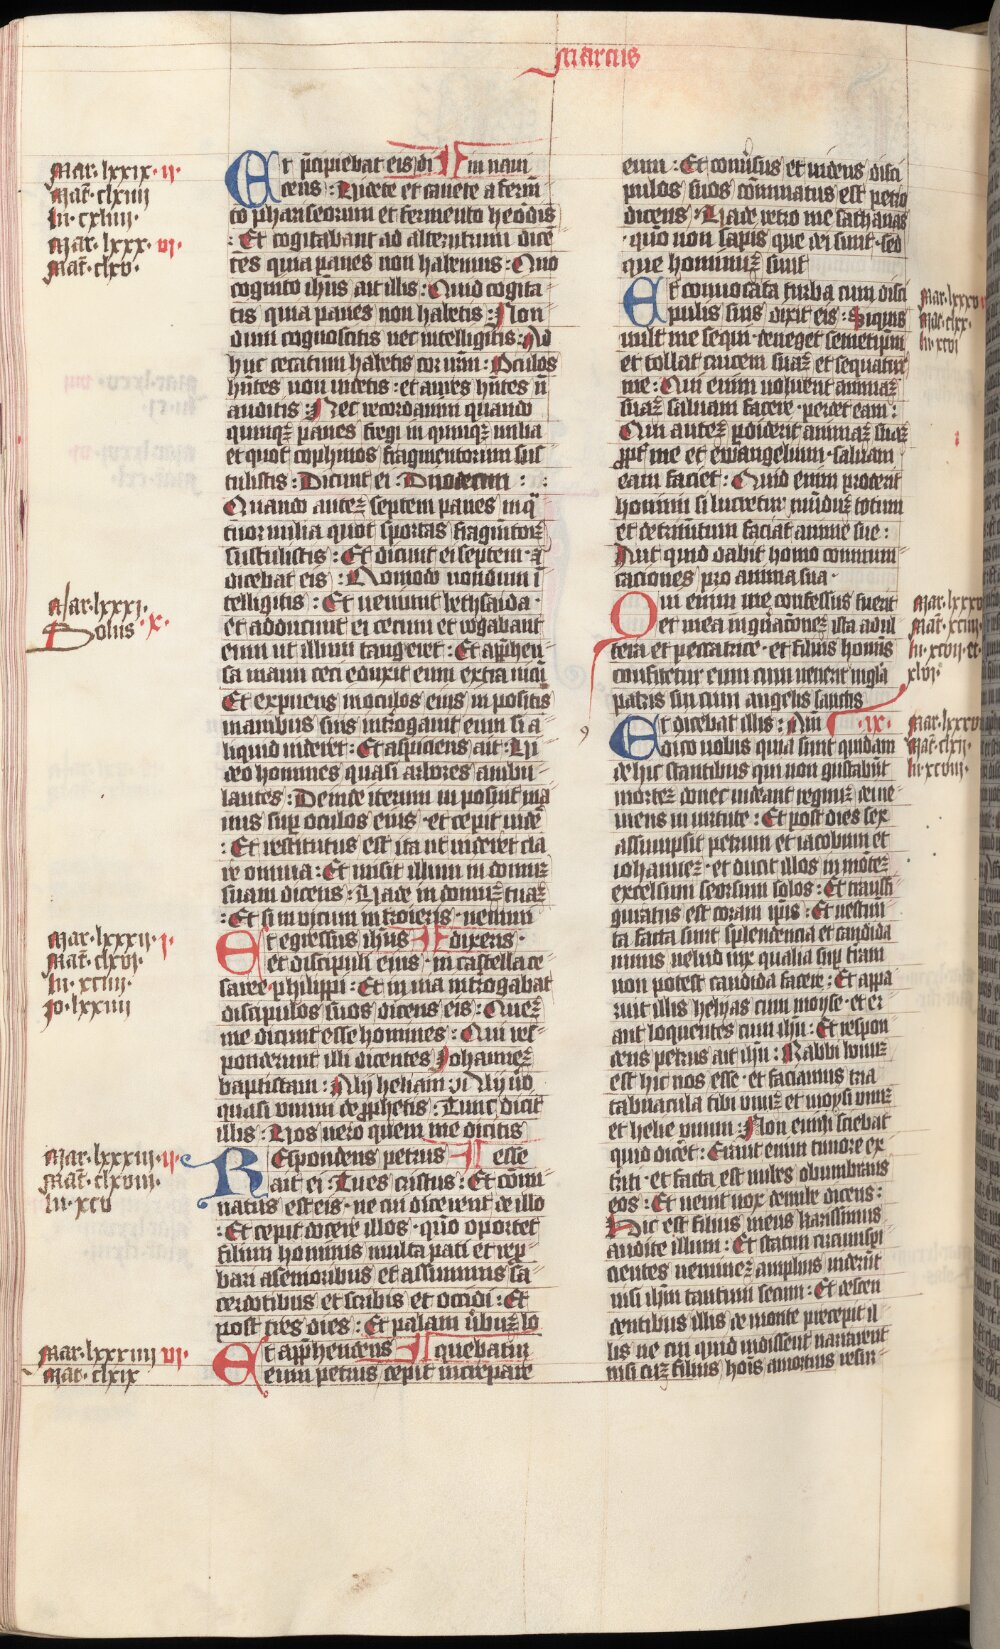 Marcus
Mar·lxxix·ii·
Mat̄·clxiiii
lu·cxliiii·
Mar·lxxx·vi·
Mat̄·clxv·
Mar·lxxxi·
Solus·x·
Mar·lxxxii·i·
Mat̄·clxvi·
lu·xciiii·
Jo·lxxiiii
Mar·lxxxiii·ii·
Mat̄·clxviii·
lu·xcv
Mar·lxxxiiii vi·
Mat̄·clxix
Et p̄cipiebat eis di in naui
cens : Videte et cauete a ferm̄
to phariseorum et fermento herodis
: Et cogitabant ad alterutrum dicē
tes quia panes non habemus : Quo
cognito ih̄us ait illis : Quid cogita
tis quia panes non habetis : Non
dum cognoscitis nec intelligitis : Ad
huc cecatum habetis cor ur̄m : Oculos
hn̄tes non uidetis : et aures hn̄tes n̄
auditis : Nec recordamini quando
quinqz panes fregi in quinqz milia
et quot cophinos fragmentorum sus
tulistis : Dicunt ei : Duodecim :
Quando autez septem panes in q̄
tuor milia quot sportas fragm̄torz
sustulistis : Et dicunt ei septem · Et
dicebat eis : Quomodo nondum ī
telligitis : Et ueniunt bethsaida ·
et adducunt ei cecum et rogabant
eum ut illum tangeret : Et app̄hen
sa manu ceci eduxit eum extra uicū
Et expuens in oculos eius inpositis
manibus suis int̄rogauit eum si a
liquid uideret : Et aspiciens ait : Vi
deo homines quasi arbores ambu
lantes : Deinde iterum inposuit ma
nus sup oculos eius · et cepit uidē
: Et restitutus est ita ut uideret cla
re omnia : Et misit illum in domuz
suam dicens : Uade in domuz tuaz
: Et si in uicum introieris · nemini
Et egressus ih̄us dixeris ·
et discipuli eius · in castella ce
saree philippi : Et in uia int̄rogabat
discipulos suos dicens eis : Quez
me dicunt esse homines : Qui res
ponderunt illi dicentes Johannez
baptistam : Alij heliam Alij uō
quasi unum de prophetis : Tunc dicit
illis : Vos uero quem me dicitis
Respondens petrus esse
ait ei : Tu es cristus : Et cōmi
natus est eis · ne cui dicerent de illo
: Et cepit docere illos · quō oportet
filium hominis multa pati et rep
bari a senioribus et a summis sa
cerdotibus et scribis et occidi : Et
post tres dies : Et palam ūbuz lo
Et app̄hendens quebatur
eum petrus cepit increpare
eum : Et conūsus et uidens disci
pulos suos cōminatus est petro
dicens : Uade retro me sathanas
· quō non sapis que dei sunt · sed
que hominuz sunt
Et conuocata turba cum disci
pulis suis dixit eis : Siquis
uult me sequi · deneget semetip̄m
et tollat crucem suaz et sequatur
me : Qui enim uoluerit animaz
suaz saluam facere · perdet eam :
Qui autez pdiderit animaz suaz
ppt me et ewangelium · saluam
eam faciet : Quid enim proderit
homini si lucretur mūduz totum
et detrim̄tum faciat anime sue :
Aut quid dabit homo commun
taciones pro anima sua ·
Qui enim me confessus fuerit
et mea in gn̄acōne ista adul
tera et peccatrice · et filius homīs
confitetur eum cum uenerit in gla
patris sui cum angelis sanctis
Et dicebat illis : Am̄ ·ix·
dico uobis quia sunt quidam
de hic stantibus qui non gustabūt
mortez donec uideant regnuz dei ue
niens in uirtute : Et post dies sex
assumpsit petrum et iacobum et
iohannez · et ducit illos in mōtez
excelsum seorsum solos : Et transfi
guratus est coram ip̄is : Et uestim̄
ta facta sunt splendencia et candida
nimis uelud nix qualia sup tram
non potest candida facere : Et appa
ruit illis helyas cum moyse · et er
ant loquentes cum ih̄u : Et respon
dens petrus ait ih̄u : Rabbi bonuz
est hic nos esse · et faciamus tria
tabnacula tibi unuz et moysi unuz
et helie unum : Non enim sciebat
quid dicēt : Erant enim timore ex
triti · et facta est nubes obumbrans
eos : Et uenit uox de nube dicens :
Hic est filius meus karissimus
audite illum : Et statim circumspi
cientes neminez amplius uiderūt
nisi ih̄m tantum secum : Et descen
dentibus illis de monte precepit il
lis ne cui quid uidissent narrarent
nisi cuz filius hoīs a mortuis resur
Mar·lxxxv
Mat̄·clxx·
lu·xcvi
Mat·xciiii·
lu·xcvii·et·
xlvi·
Mat̄·clxxi·
lu·xcviii·